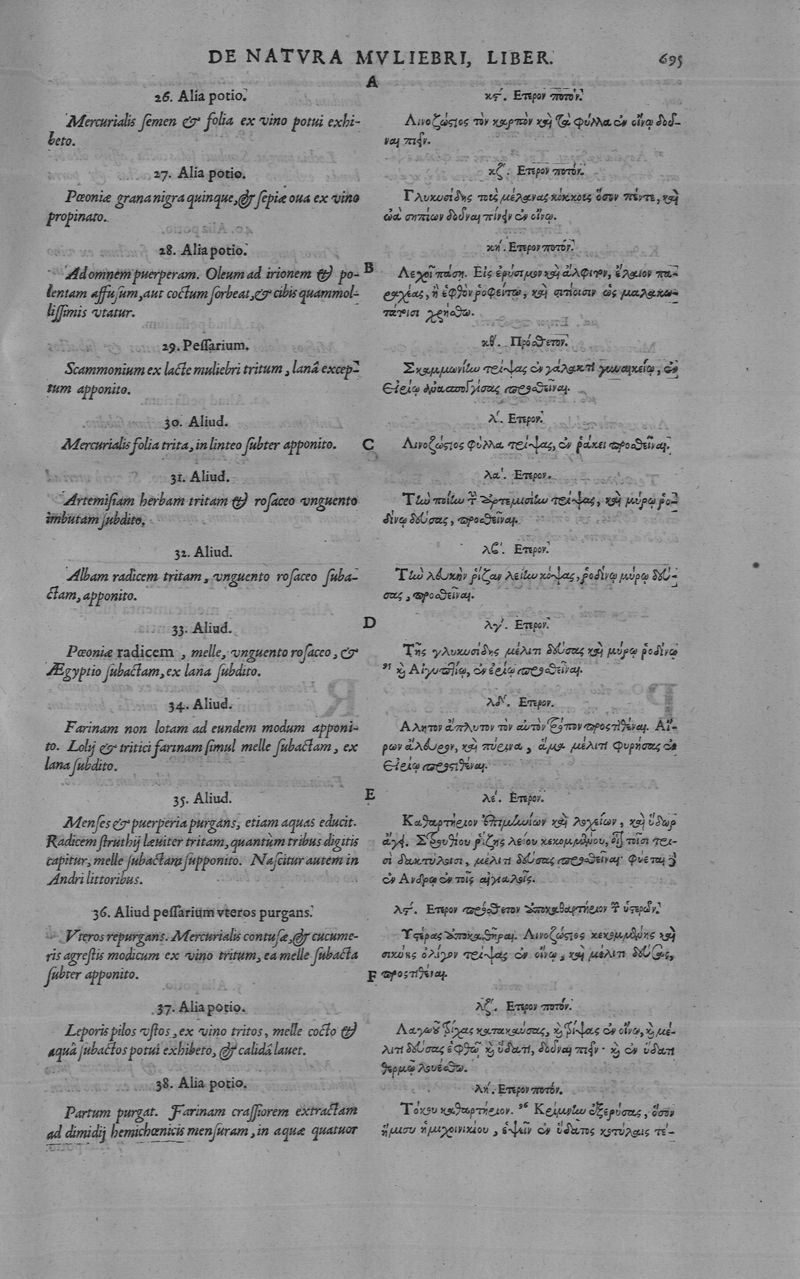 DE NATVRA MVLIEBRI, LIBER. 695
A
26. Alia potio.
Mercurialis ſemen & folia ex vino potui exhi-
beto.
27. Alia potio.
Pœoniæ grana nigra quinque, & ſepiæ oua ex vino
propinato.
28. Alia potio.
Ad omnem puerperam. Oleum ad irionem & po-
lentam affuſum, aut coctum ſorbeat, & cibis quammol-
liſſimis vtatur.
29. Peſſarium.
Scammonium ex lacte muliebri tritum, lanâ excep-
tum apponito.
30. Aliud.
Mercurialis folia trita, in linteo ſubter apponito.
31. Aliud.
Artemiſiam herbam tritam & roſaceo vnguento
imbutam ſubdito.
32. Aliud.
Albam radicem tritam, vnguento roſaceo ſuba-
ctam, apponito.
33. Aliud.
Pœoniæ radicem, melle, vnguento roſaceo, &
Ægyptio ſubactam, ex lana ſubdito.
34. Aliud.
Farinam non lotam ad eundem modum apponi-
to. Lolij & tritici farinam ſimul melle ſubactam, ex
lana ſubdito.
35. Aliud.
Menſes & puerperia purgans, etiam aquas educit.
Radicem ſtruthij læuiter tritam, quantùm tribus digitis
capitur, melle ſubactam ſupponito. Naſcitur autem in
Andri littoribus.
36. Aliud peſſarium vteros purgans.
Vteros repurgans. Mercurialis contuſæ, & cucume-
ris agreſtis modicum ex vino tritum, ea melle ſubacta
ſubter apponito.
37. Alia potio.
Leporis pilos vſtos, ex vino tritos, melle cocto &
aquâ ſubactos potui exhibeto, & calidâ lauet.
38. Alia potio.
Partum purgat. Farinam craſſiorem extractam
ad dimidij hemichœnicis menſuram, in aquæ quatuor
B
C
D
E
F
κϛʹ. Ετερον ποτόν.
Λινοζώστιος τὸν καρπὸν καὶ τὰ φύλλα ἐν οἴνῳ δοῦ-
ναι πιεῖν.
κζʹ. Ετερον ποτόν.
Γλυκυσίδης τοὺς μέλανας κόκκους ὅσον πέντε, καὶ
ὠὰ σηπίων δοῦναι πίνειν ἐν οἴνῳ.
κηʹ. Ετερον ποτόν.
Λεχοῖ πάσῃ. Εἰς ἐρύσιμον καὶ ἄλφιτον, ἔλαιον πα-
ραχέας, ἢ ἑφθὸν ῥοφείτω, καὶ σιτίοισιν ὡς μαλακω-
τάτοισι χρήσθω.
κθʹ. Πρόσθετον.
Σκαμμωνίαν τρίψας ἐν γάλακτι γυναικείῳ, ἐν
εἰρίῳ ἀνασπογγίσας προσθεῖναι.
λʹ. Ετερον.
Λινοζώστιος φύλλα τρίψας, ἐν ῥάκει προσθεῖναι.
λαʹ. Ετερον.
Τὴν ποίην τ̃ ἀρτεμισίην τρίψας, καὶ μύρῳ ῥο-
δίνῳ δεύσας, προσθεῖναι.
λβʹ. Ετερον.
Τὴν λευκὴν ῥίζαν λείην κόψας, ῥοδίνῳ μύρῳ δεύ-
σας, προσθεῖναι.
λγʹ. Ετερον.
Τῆς γλυκυσίδης μέλιτι δεύσας καὶ μύρῳ ῥοδίνῳ
κ̀ Αἰγυπτίῳ, ἐν ἐρίῳ προσθεῖναι.
λδʹ. Ετερον.
Αλητον ἄπλυτον τὸν αὐτὸν τρόπον προστιθέναι. Αἴ-
ρων ἄλευρον, καὶ πύρινα, ἅμα μέλιτι φυρήσας ἐν
εἰρίῳ προστιθέναι.
λεʹ. Ετερον.
Καθαρτήριον ἐπιμηνίων καὶ λοχείων, καὶ ὕδωρ
ἄγει. Στρουθίου ῥίζης λείου κεκομμένου, ὅσον τοῖσι τρι-
σὶ δακτύλοισι, μέλιτι δεύσας προσθεῖναι· φύεται δὲ
ἐν Ανδρῳ ἐν τοῖς αἰγιαλοῖς.
λϛʹ. Ετερον πρόσθετον ὑποκαθαρτήριον τ̃ ὑστερῶν.
Υστέρας ὑποκαθῆραι. Λινοζώστιος κεκομμένης καὶ
σικύης ὀλίγον τρίψας ἐν οἴνῳ, καὶ μέλιτι δεύσας,
προστιθέναι.
λζʹ. Ετερον ποτόν.
Λαγωοῦ τρίχας κατακαύσας, κ̀ τρίψας ἐν οἴνῳ, κ̀ μέ-
λιτι δεύσας ἑφθῷ κ̀ ὕδατι, δοῦναι πιεῖν· κ̀ ἐν ὕδατι
θερμῷ λουέσθω.
ληʹ. Ετερον ποτόν.
Τόκου καθαρτήριον. Κρίμνων ἐξερύσας, ὅσον
ἥμισυ ἡμιχοινικίου, ἑψεῖν ἐν ὕδατος κοτύλαις τέ-